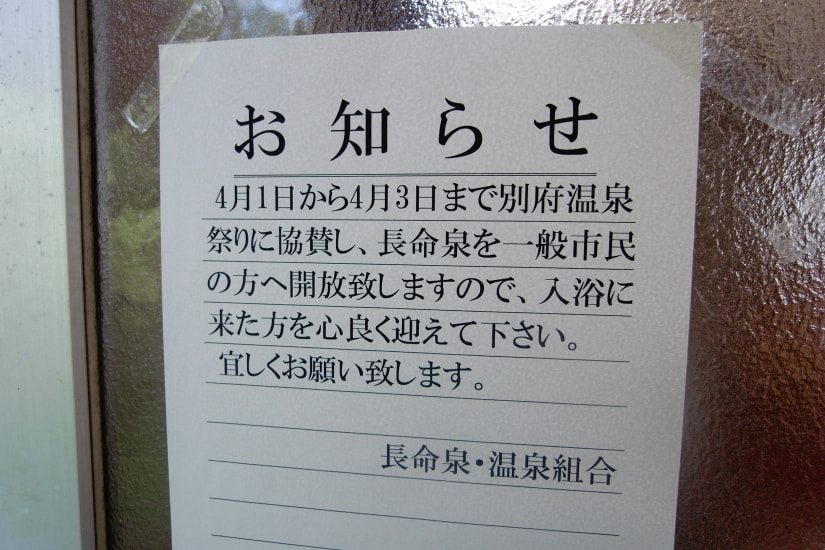 お知らせ
4月1日から4月3日まで別府温泉
祭りに協賛し、長命泉を一般市民
の方へ開放致しますので、入浴に
来た方を心良く迎えて下さい。
宜しくお願い致します。
長命泉・温泉組合